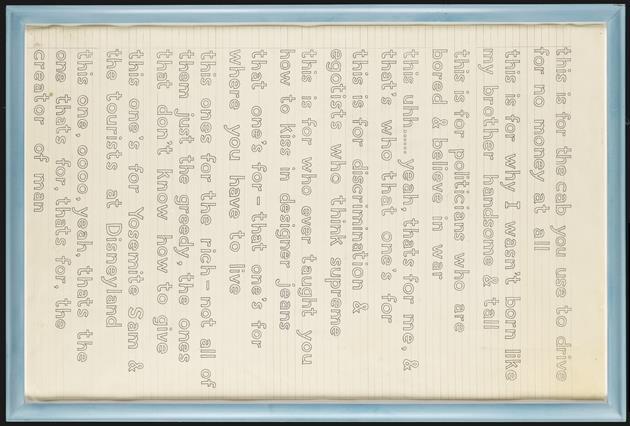 this is for the cab you use to drive
for no money at all
this is for why I wasn't born like
my brother handsome & tall
this is for politicians who are
bored & believe in war
this uhh...... yeah, thats for me, &
that's who that one's for
this is for discrimination &
egotists who think supreme
this is for who ever taught you
how to kiss in designer jeans
that one's for – that one's for
where you have to live
this ones for the rich – not all of
them just the greedy, the ones
that don't know how to give
this one's for Yosemite Sam &
the tourists at Disneyland
this one, oooo, yeah, thats the
one thats for, thats for, the
creator of man